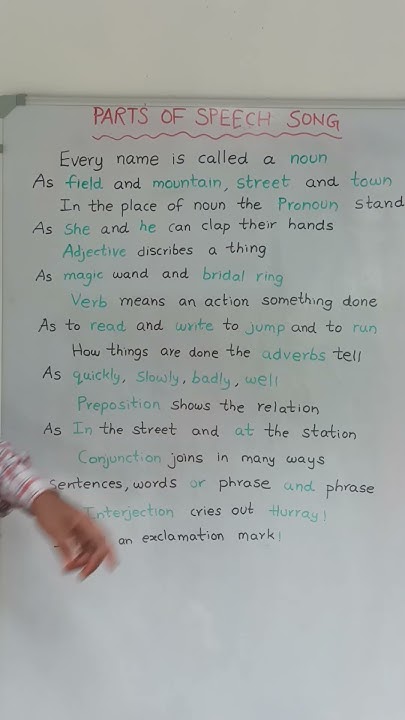 PARTS OF SPEECH SONG
Every name is called a noun
As field and mountain, street and town
In the place of noun the Pronoun stand
As She and he can clap their hands
Adjective discribes a thing
As magic wand and bridal ring
Verb means an action something done
As to read and write to jump and to run
How things are done the adverbs tell
As quickly, slowly, badly, well
Preposition shows the relation
As In the street and at the station
Conjunction joins in many ways
Sentences, words or phrase and phrase
Interjection cries out Hurray!
an exclamation mark!